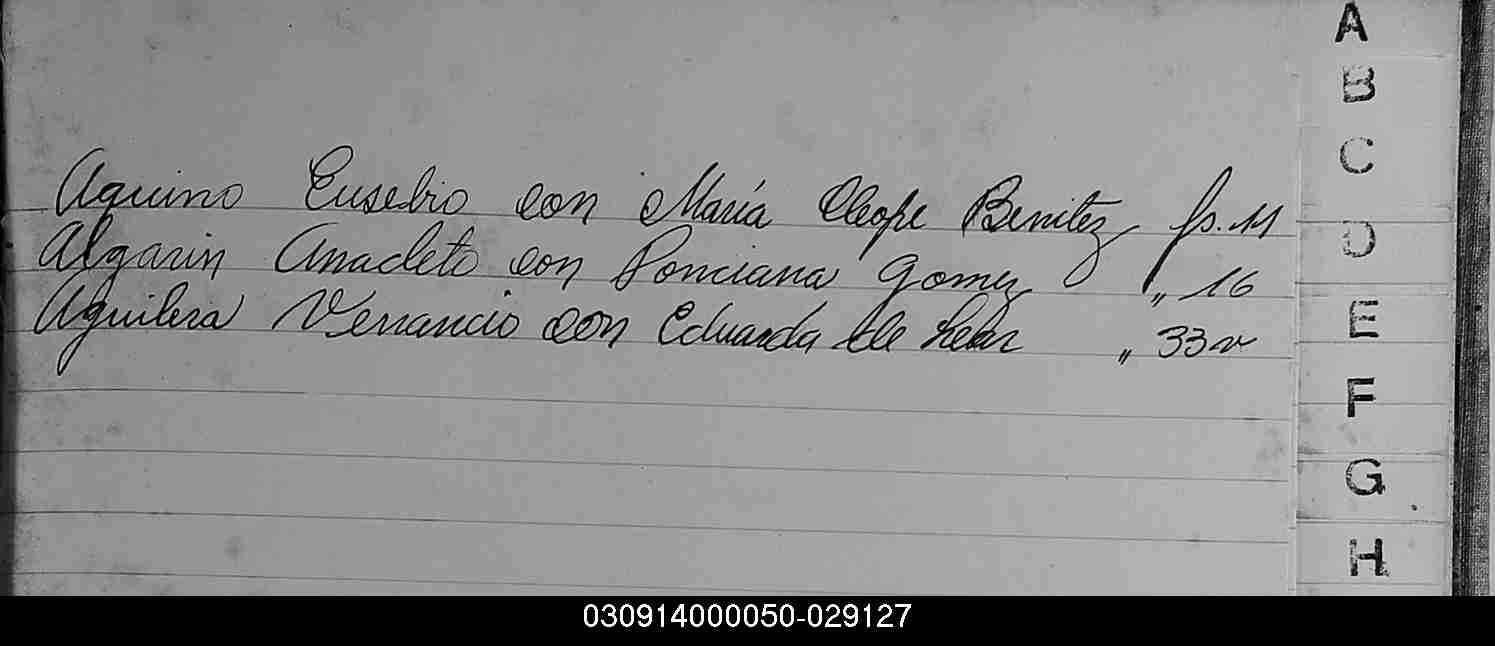 A
B
C
Aquino Eusebio con María Cleofe Benitez fs. 11
D
Algarin Anacleto con Ponciana Gomez " 16
E
Aguilera Venancio con Eduarda de " 33v
F
G
H
030914000050-029127